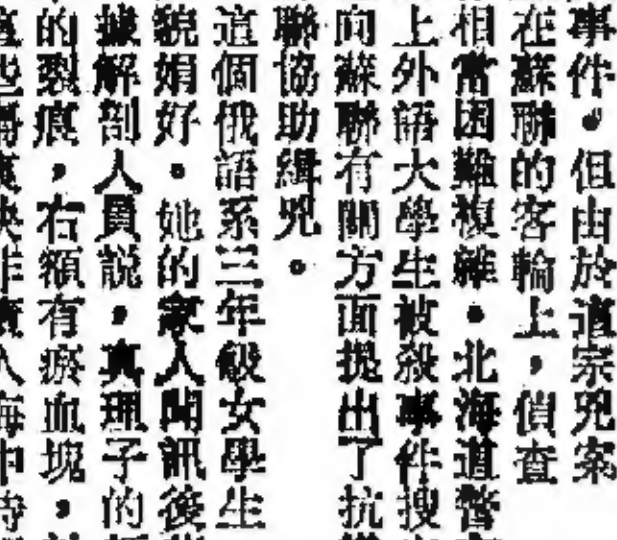 事件。但由於這宗兇案
在蘇聯的客輪上，偵查
相當困難複雜。北海道警
上外語大學生被殺事件搜
向蘇聯有關方面提出了抗
聯協助緝兇。
這個俄語系三年級女學生
貌娟好。她的家人聞訊後
據解剖人員說，真理子的
的裂痕，右額有瘀血塊，